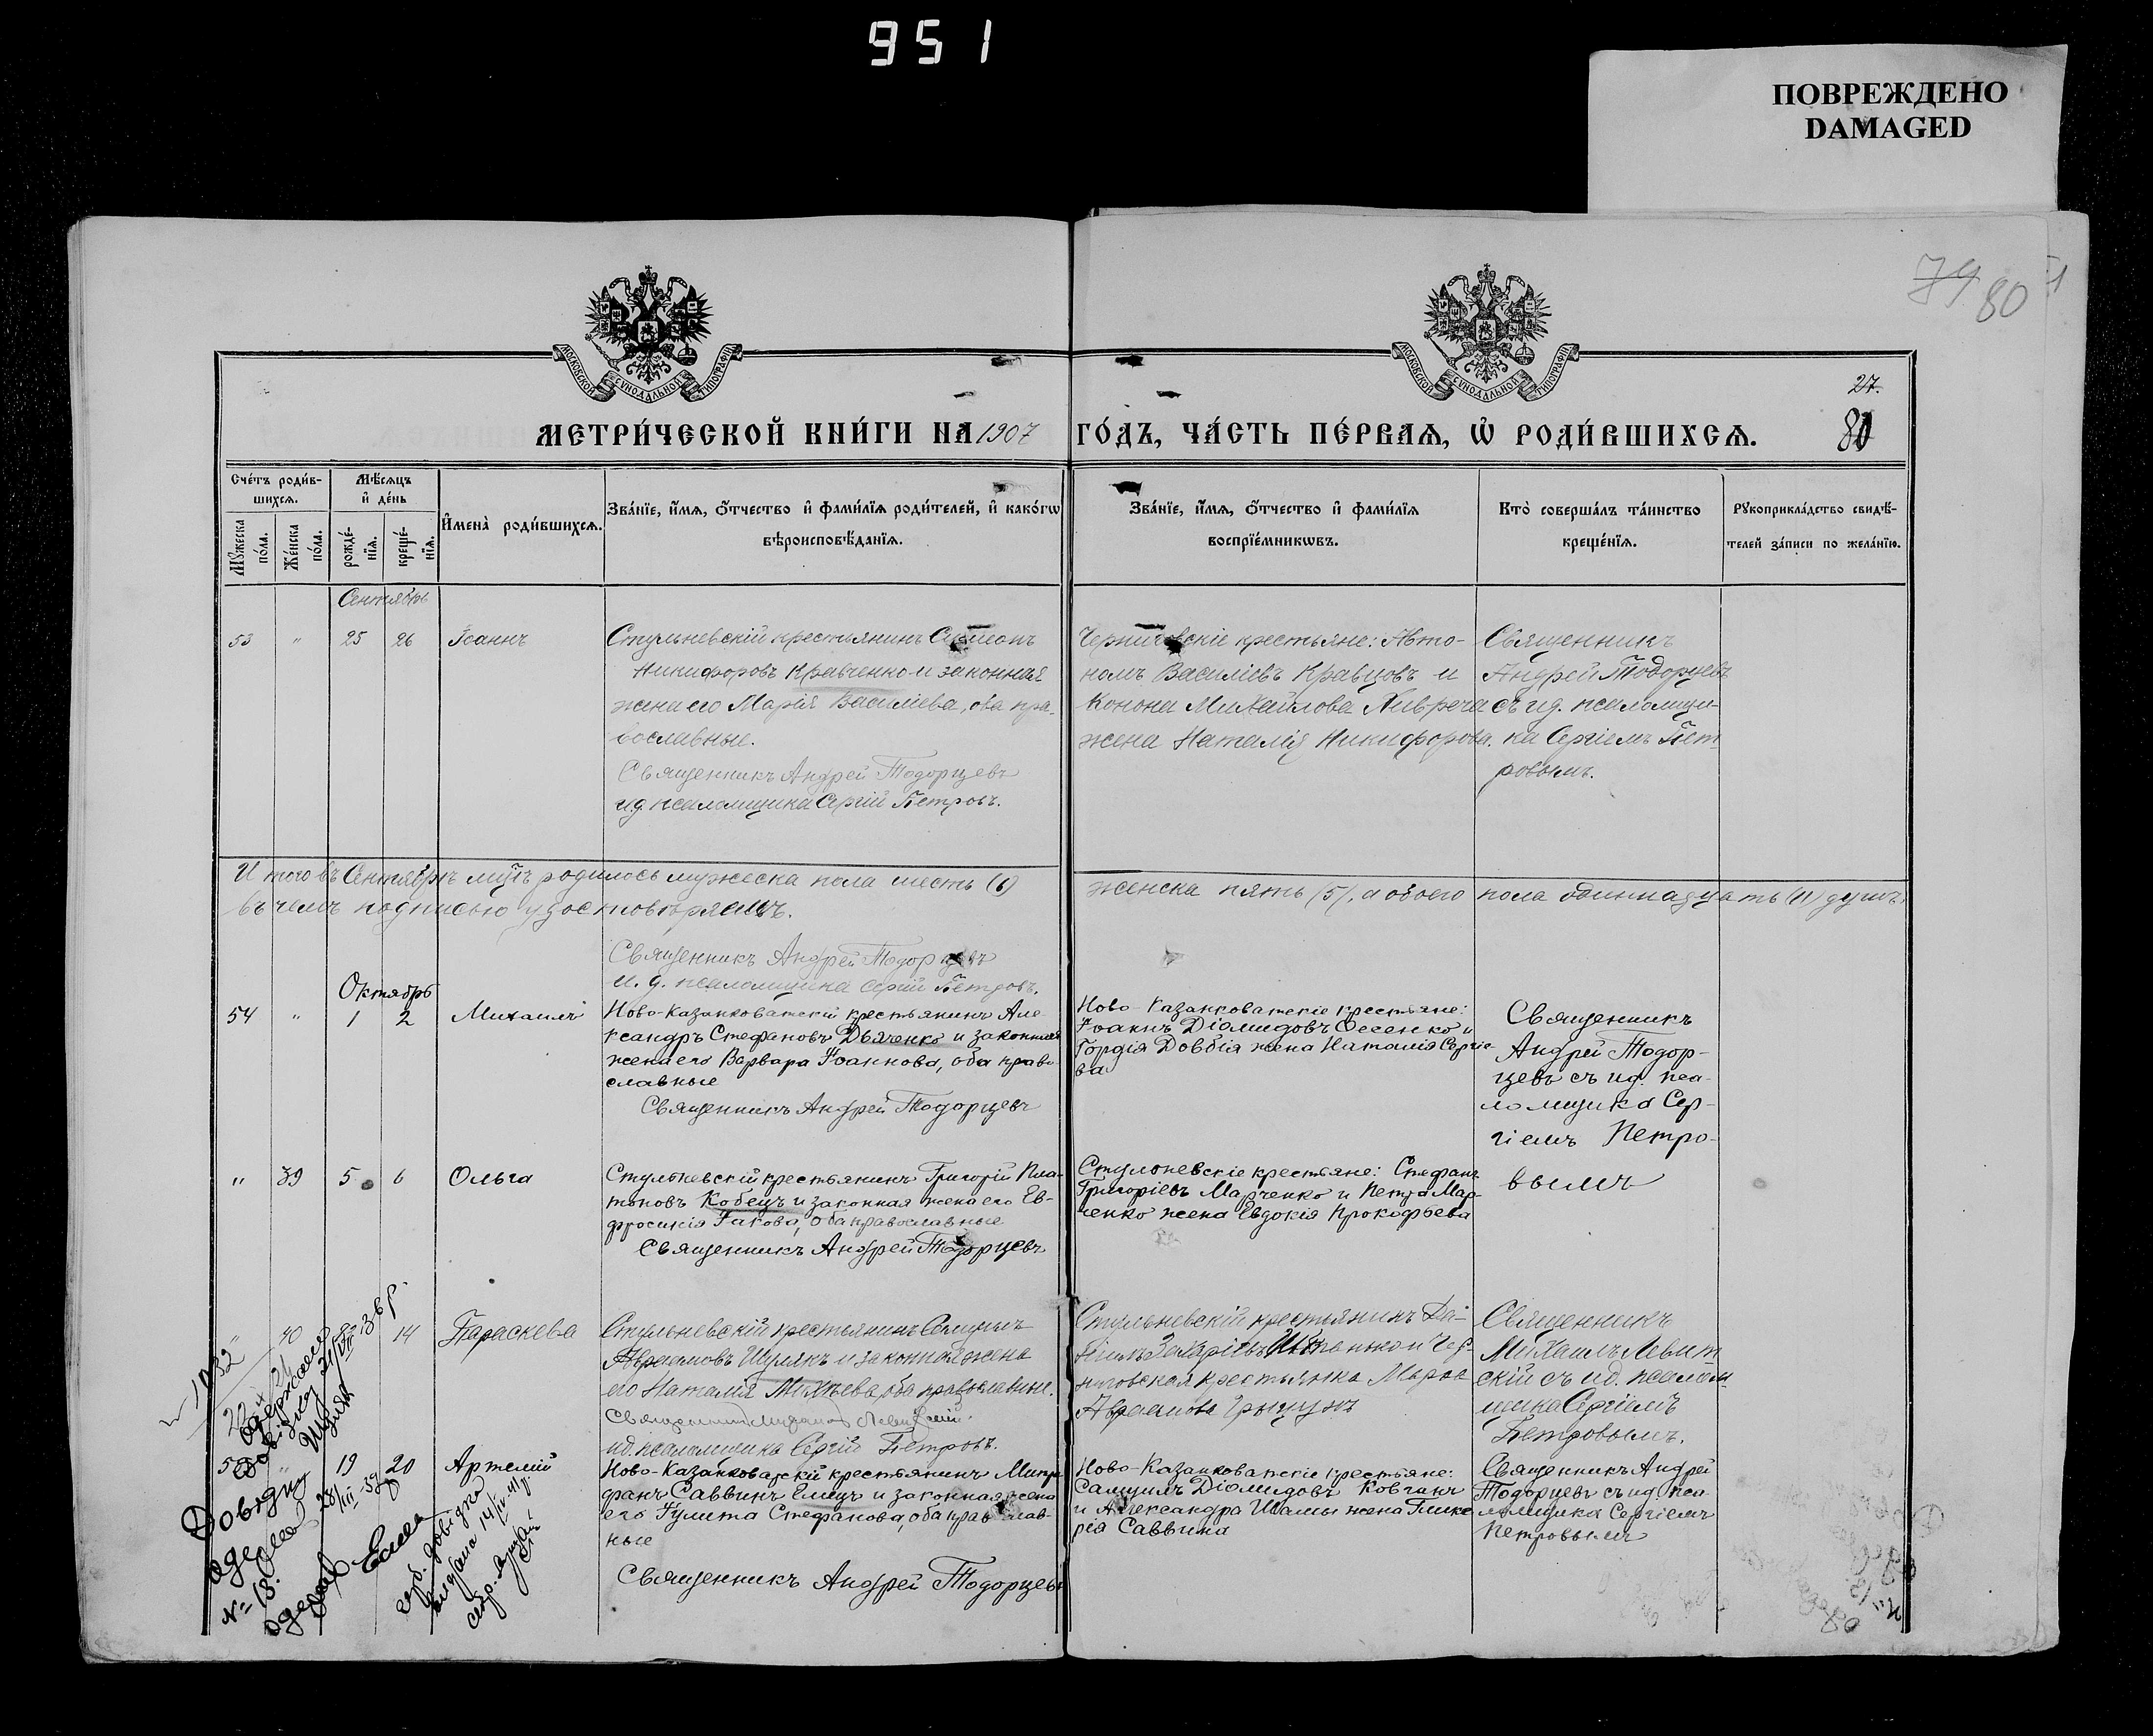 951
ПОВРЕЖДЕНО
DAMAGED
79 80
МОСКОВСКОЙ СѴНОДАЛЬНОЙ ТИПОГРАФІИ
МОСКОВСКОЙ СѴНОДАЛЬНОЙ ТИПОГРАФІИ
27.
МЕТРИ́ЧЕСКОЙ КНИ́ГИ НА 1907 ГО́ДЪ, ЧА́СТЬ ПЕ́РВАѦ, Ѡ҆ РОДИ́ВШИХСѦ.
Сче́тъ роди́в-
шихсѧ.
Мѣ́сѧцъ
и҆ де́нь
Мꙋ́жеска
по́ла.
Же́нска
по́ла.
рожде́-
нїѧ.
креще́-
нїѧ.
И҆мена̀ роди́вшихсѧ.
Зва́нїе, и҆́мѧ, ѻ҆́тчество и҆ фами́лїѧ роди́телей, и҆ како́гѡ
вѣроисповѣ́данїѧ.
Зва́нїе, и҆́мѧ, ѻ҆́тчество и҆ фами́лїѧ
воспрїе́мникѡвъ.
Кто̀ соверша́лъ та́инство
креще́нїѧ.
Рꙋкоприкла́дство свидѣ́-
телей за́писи по жела́нїю.
Сентябрь
53 " 25 26 Іоаннъ
Стульневскій крестьянинъ Симеонъ
Никифоровъ Кравченко и законная
жена его Марія Василіева, оба пра-
вославные.
Священникъ Андрей Тодорцевъ
и.д. псаломщика Сергій Петровъ.
Черниговскіе крестьяне: Авто-
номъ Василіевъ Кравцовъ и
Конона Михайлова
жена Наталія Никифорова.
Священникъ
Андрей Тодорцевъ
съ и.д. псаломщи-
ка Сергіемъ Пет-
ровымъ.
Итого въ Сентябрѣ мцѣ родилось мужеска пола шесть (6) женска пять (5), а обоего пола одиннадцать (11) душъ,
въ чемъ подписью удостовѣряемъ.
Священникъ Андрей Тодорцевъ
и.д. псаломщика Сергій Петровъ.
Октябрь
54 " 1 2 Михаилъ
Ново-Казанковатскій крестьянинъ Але-
ксандръ Стефановъ Дьяченко и законная
жена его Варвара Іоаннова, оба право-
славные
Священникъ Андрей Тодорцевъ
Ново-Казанковатскіе крестьяне:
Іоаннъ Діомидовъ Фесенко и
Гордія Довбія жена Наталія Сергіе-
ва
Священникъ
Андрей Тодор-
цевъ съ и.д. пса-
ломщика Сер-
гіемъ Петро-
вымъ
" 39 5 6 Ольга
Стульневскій крестьянинъ Григорій Пла-
тоновъ Кобецъ и законная жена его Ев-
фросинія Іакова, оба православные
Священникъ Андрей Тодорцевъ
Стульневскіе крестьяне: Стефанъ
Григоріевъ Марченко и Петра Мар-
ченко жена Евдокія Прокофьева
" 40 14 Параскева
Стульневскій крестьянинъ Самуилъ
Авраамовъ Шулякъ и законная жена
его Наталія Михѣева, оба православные.
Священникъ Михаилъ Левитскій.
и.д. псаломщика Сергій Петровъ.
Стульневскій крестьянинъ Да-
ніилъ Захаріевъ и Чер-
ниговская крестьянка Марѳа
Авраамова
Священникъ
Михаилъ Левит-
скій съ и.д. псалом-
щика Сергіемъ
Петровымъ.
19 20 Артемій
Ново-Казанковатскій крестьянинъ Митро-
фанъ Саввинъ Емецъ и законная жена
его Іулита Стефанова, оба православ-
ные
Священникъ Андрей Тодорцевъ
Ново-Казанковатскіе крестьяне:
Самуилъ Діомидовъ Ковганъ
и Александра Шамы жена Глике-
рія Саввина
Священникъ Андрей
Тодорцевъ съ и.д. пса-
ломщика Сергіемъ
Петровымъ
Довідку
№ 18.